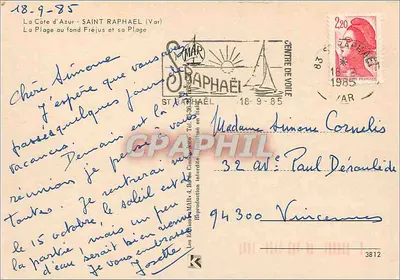 18-9-85
La Côte d'Azur - SAINT RAPHAEL (Var)
La Plage au fond Fréjus et sa Plage
Chère Simone
J'espère que vous avez
passé quelques jours de
vacances.
Demain est la
réunion je pense à vous
toutes. Je rentrerai
le 15 octobre, le soleil est de
la partie, mais un peu
d'eau serait bien
Je vous embrasse
Josette
MAR
ST RAPHAËL
CENTRE DE VOILE
ST RAPHAËL 18-9-85
83
RAPHAEL
1985
VAR
2,20
Madame Simone Cornelis
32 Av. Paul Déroulède
94300 Vincennes
CARTE
PHIL
K
3812